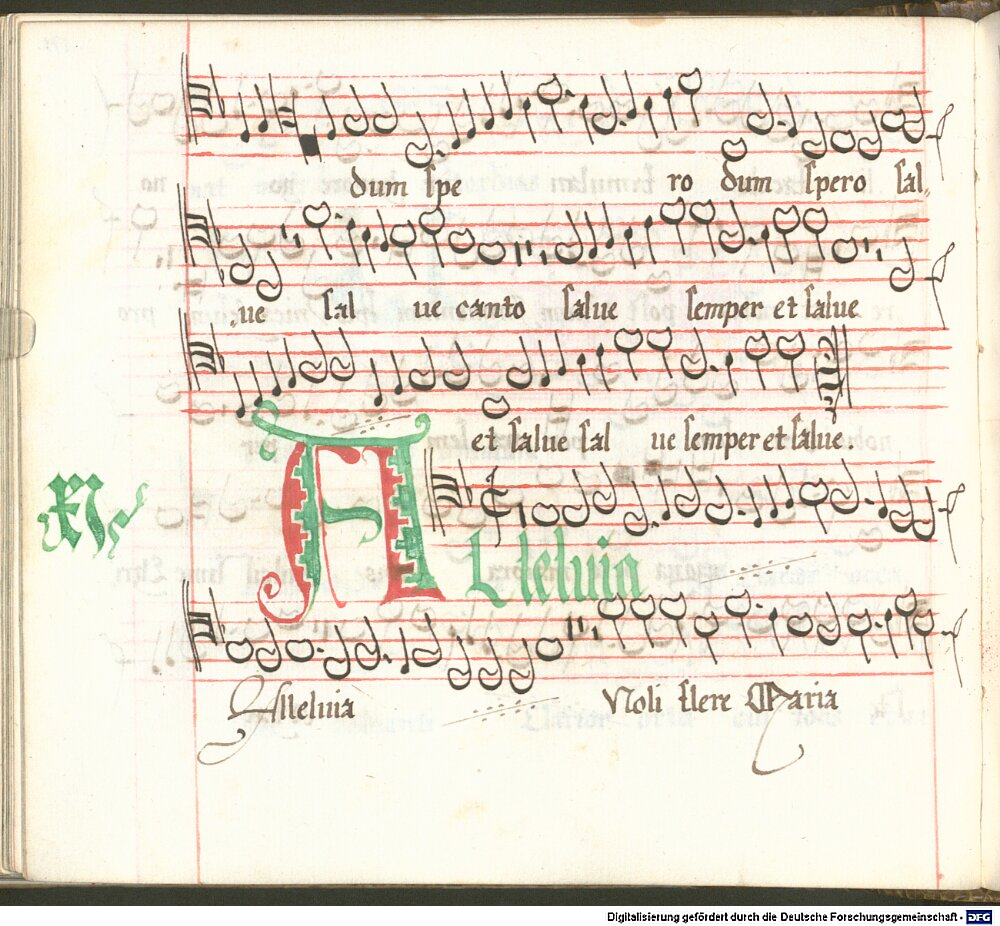 dum spe ro dum spero sal,
,ue sal ue canto salue semper et salue
et salue sal ue semper et salue.
Alleluia
Alleluia Noli flere Maria
Digitalisierung gefördert durch die Deutsche Forschungsgemeinschaft - DFG